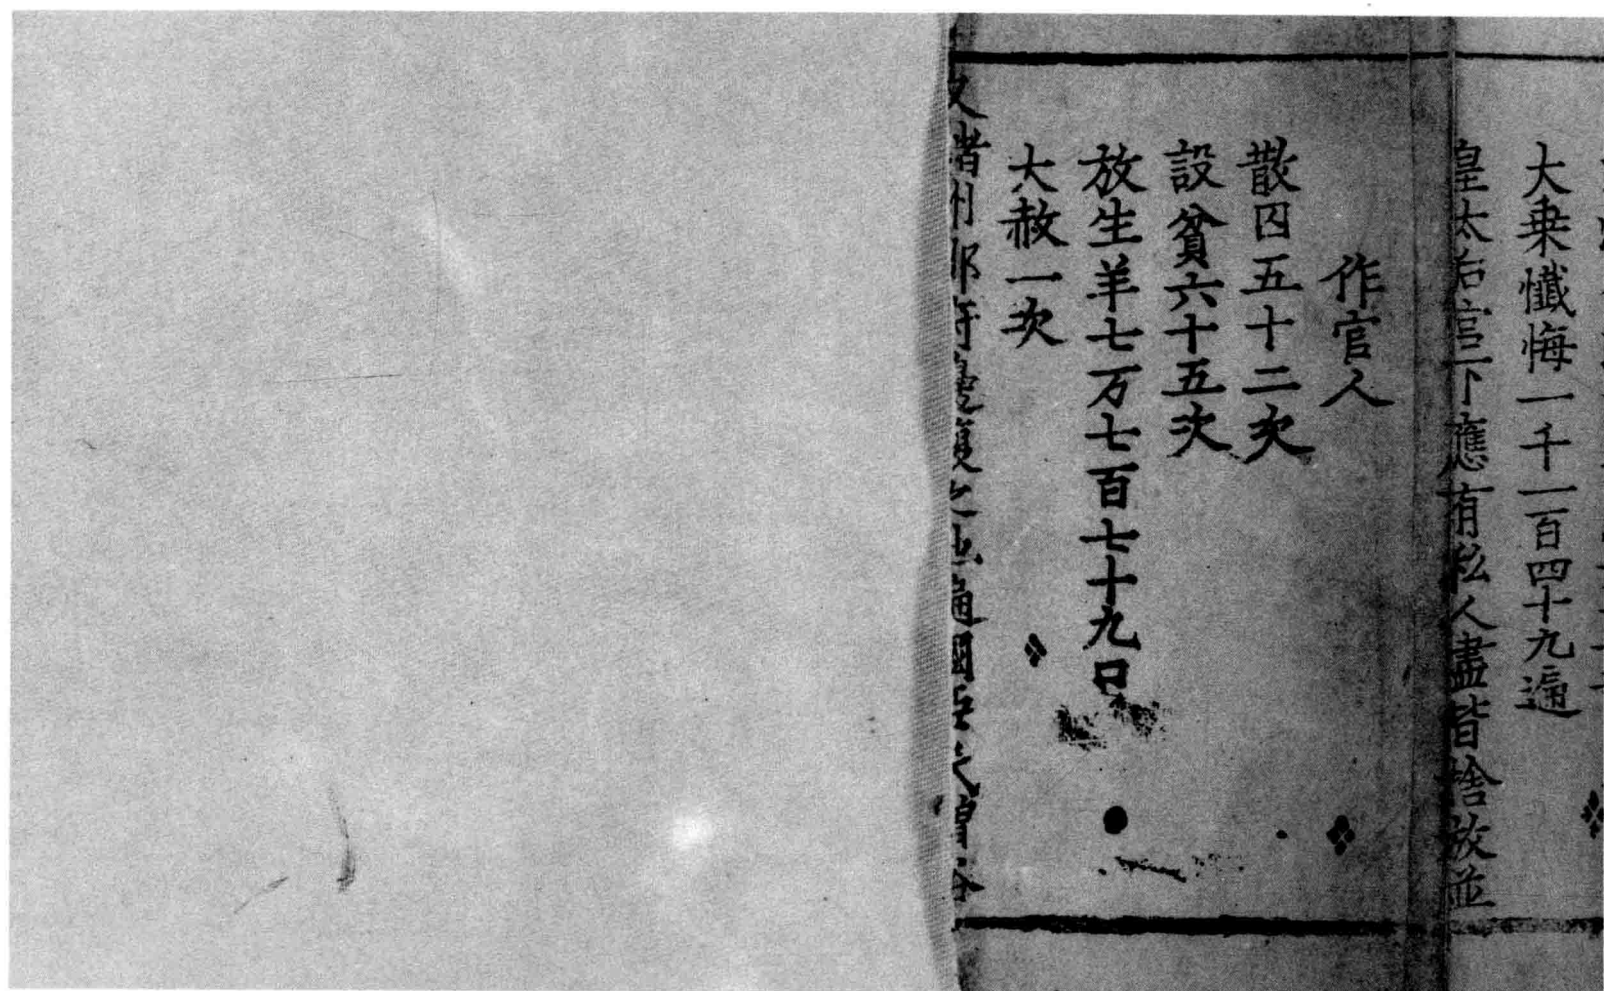 大乗懺悔一千一百四十九遍
皇太后宫下應有私人盡皆捨放並
作官人
散囚五十二次
設貧六十五次
放生羊七万七百七十九口
大赦一次
又諸州郡府
遍國臣民僧